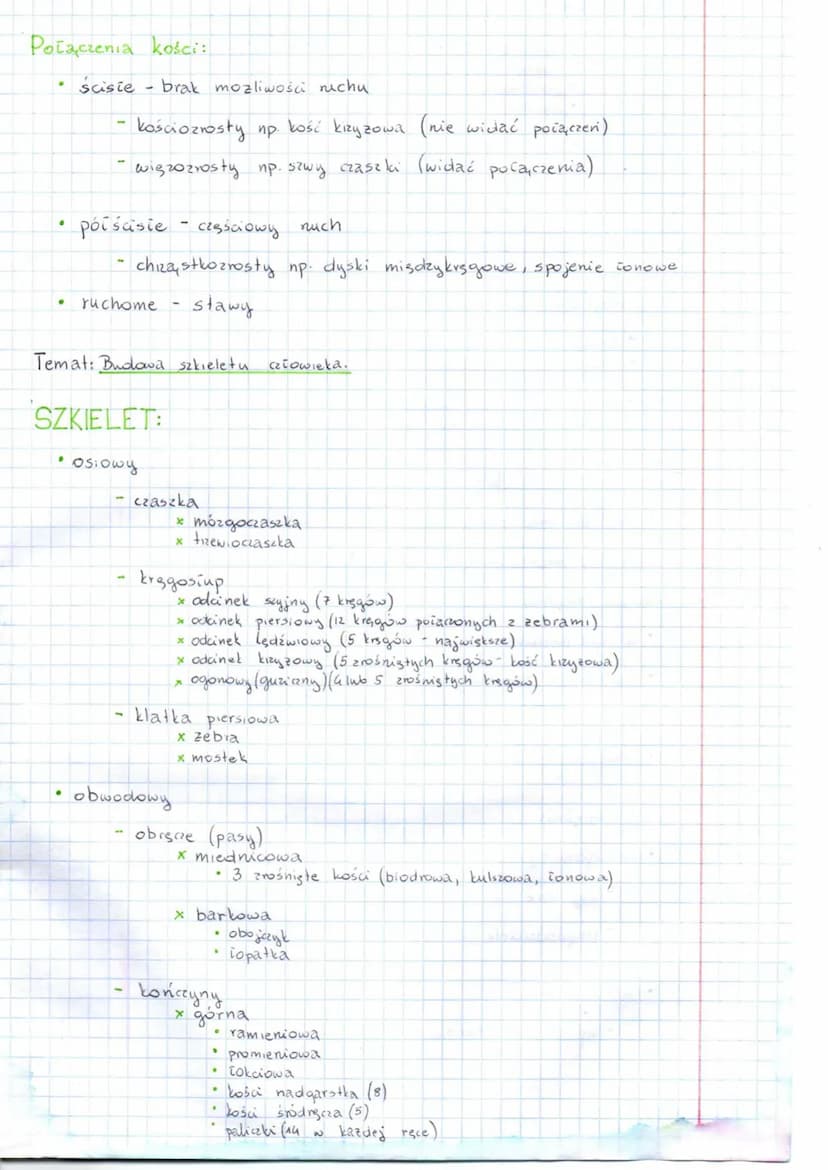 Połączenia kości:
• ścisłe - brak możliwości ruchu
- kościozrosty np. kość krzyżowa (nie widać połączeń)
- więzozrosty np. szwy czaszki (widać połączenia)
• półścisłe - częściowy ruch
- chrząstkozrosty np. dyski międzykręgowe, spojenie łonowe
• ruchome - stawy
Temat: Budowa szkieletu człowieka.
SZKIELET:
• osiowy
- czaszka
x mózgoczaszka
x trzewioczaszka
- kręgosłup
x odcinek szyjny (7 kręgów)
x odcinek piersiowy (12 kręgów połączonych z żebrami)
x odcinek lędźwiowy (5 kręgów - największe)
x odcinek krzyżowy (5 zrośniętych kręgów - kość krzyżowa)
x ogonowy (guziczny) (4 lub 5 zrośniętych kręgów)
- klatka piersiowa
x żebra
x mostek
• obwodowy
- obręcze (pasy)
x miednicowa
• 3 zrośnięte kości (biodrowa, kulszowa, łonowa)
x barkowa
• obojczyk
• łopatka
- kończyny
x górna
• ramieniowa
• promieniowa
• łokciowa
• kości nadgarstka (8)
• kości śródręcza (5)
• paliczki (14 w każdej ręce)